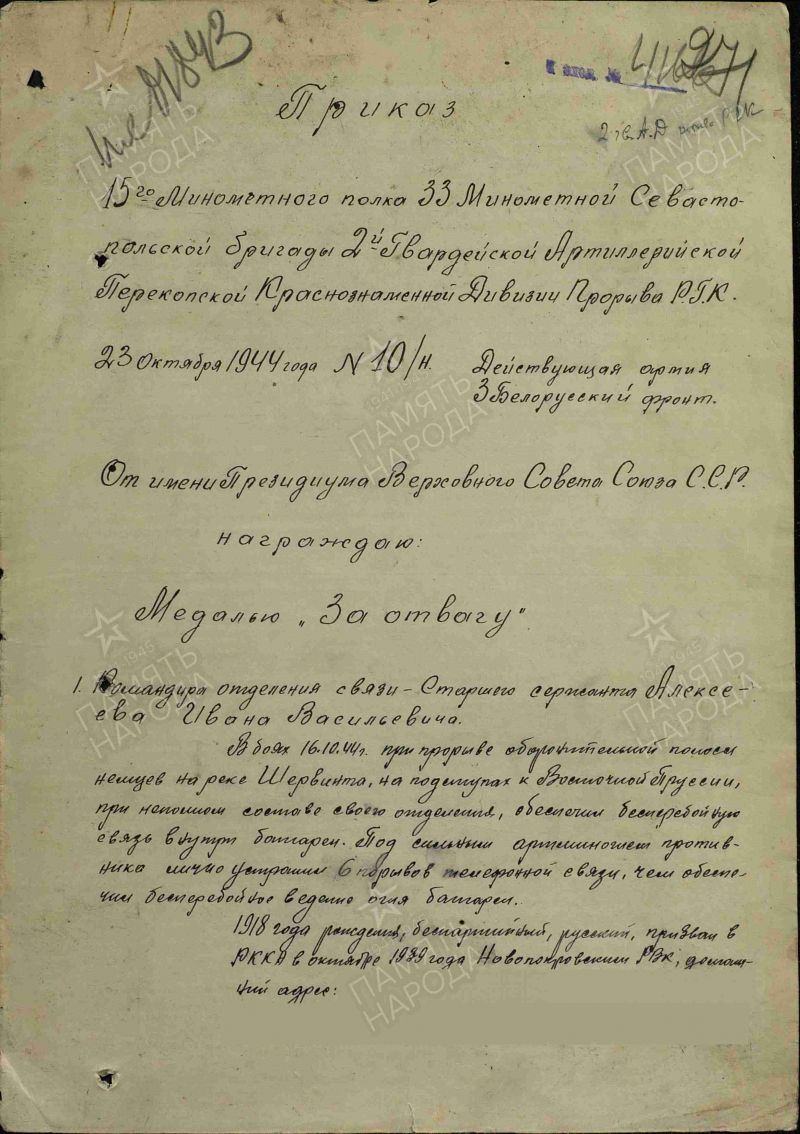 к вход №
2 гв. А.Д РГК
Приказ
15го Минометного полка 33 Минометной Севасто-
польской бригады 2й Гвардейской Артиллерийской
Перекопской Краснознаменной Дивизии Прорыва Р.Г.К.
23 Октября 1944 года N 10/н. Действующая армия
3 Белорусский фронт.
От имени Президиума Верховного Совета Союза С.С.Р.
награждаю:
Медалью „За отвагу"
1. Командира отделения связи – Старшего сержанта Алексе-
ева Ивана Васильевича.
В боях 16.10.44г. при прорыве оборонительной полосы
немцев на реке Шервинта, на подступах к Восточной Пруссии,
при неполном составе своего отделения, обеспечил бесперебойную
связь внутри батареи. Под сильным артминогнем против-
ника лично устранил 6 порывов телефонной связи, чем обеспе-
чил бесперебойное ведение огня батареи.
1918 года рождения, беспартийный, русский, призван в
РККА в октябре 1939 года Новопокровским РВК, домаш-
ний адрес:
ПАМЯТЬ НАРОДА
1945